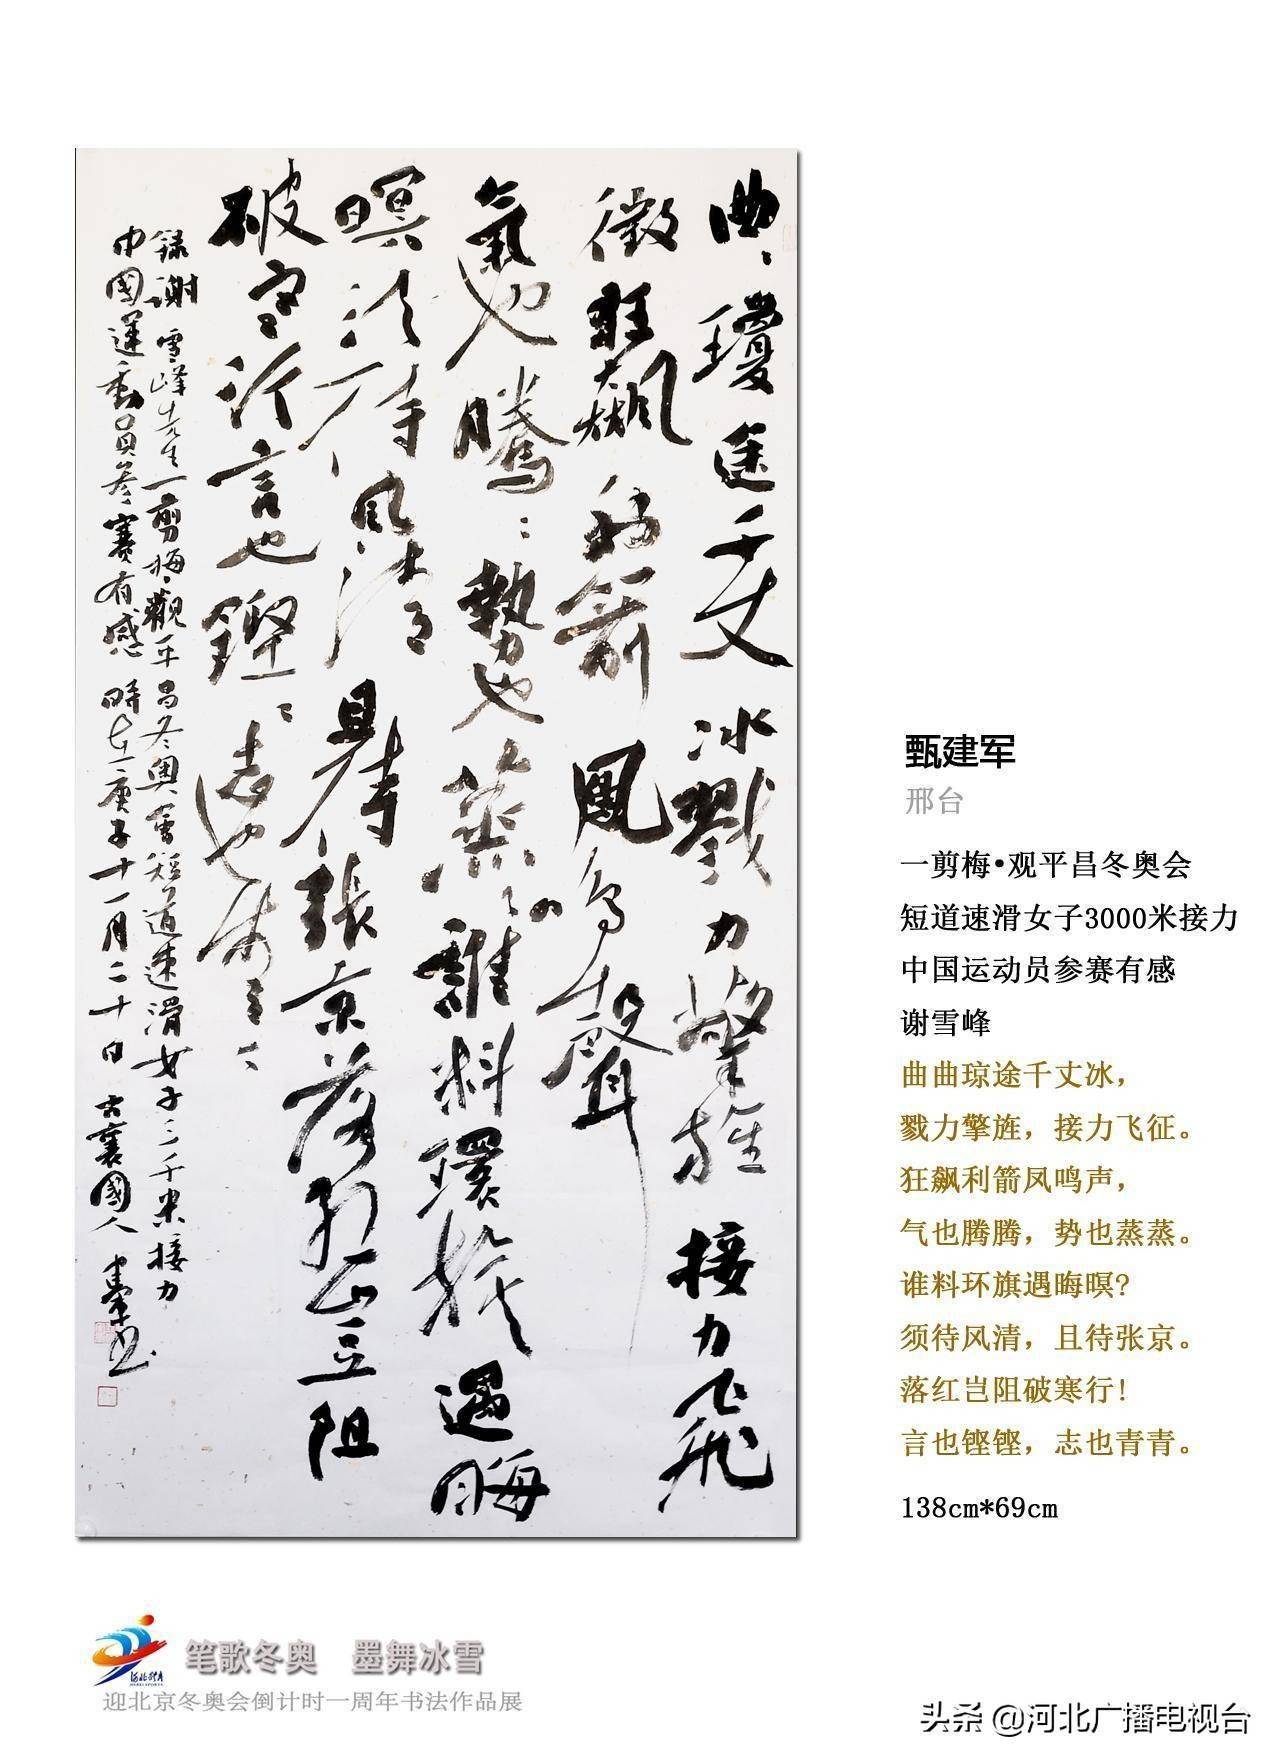 曲〻瓊途千丈冰戮力擎旌接力飛
徵狂飆利箭鳳鳴聲
氣也騰〻勢也蒸〻誰料環旗遇晦
暝須待風清且待張京落紅豈阻
破寒行言也鏗〻志也青〻
録謝雪峰先生一剪梅、觀平昌冬奧會短道速滑女子三千米接力
中國運動員參賽有感 時在庚子十一月二十日 古襄國人 建軍書
甄建军
邢台
一剪梅•观平昌冬奥会
短道速滑女子3000米接力
中国运动员参赛有感
谢雪峰
曲曲琼途千丈冰，
戮力擎旌，接力飞征。
狂飙利箭凤鸣声，
气也腾腾，势也蒸蒸。
谁料环旗遇晦暝?
须待风清，且待张京。
落红岂阻破寒行!
言也铿铿，志也青青。
138cm*69cm
笔歌冬奥 墨舞冰雪
迎北京冬奥会倒计时一周年书法作品展
头条 @河北广播电视台